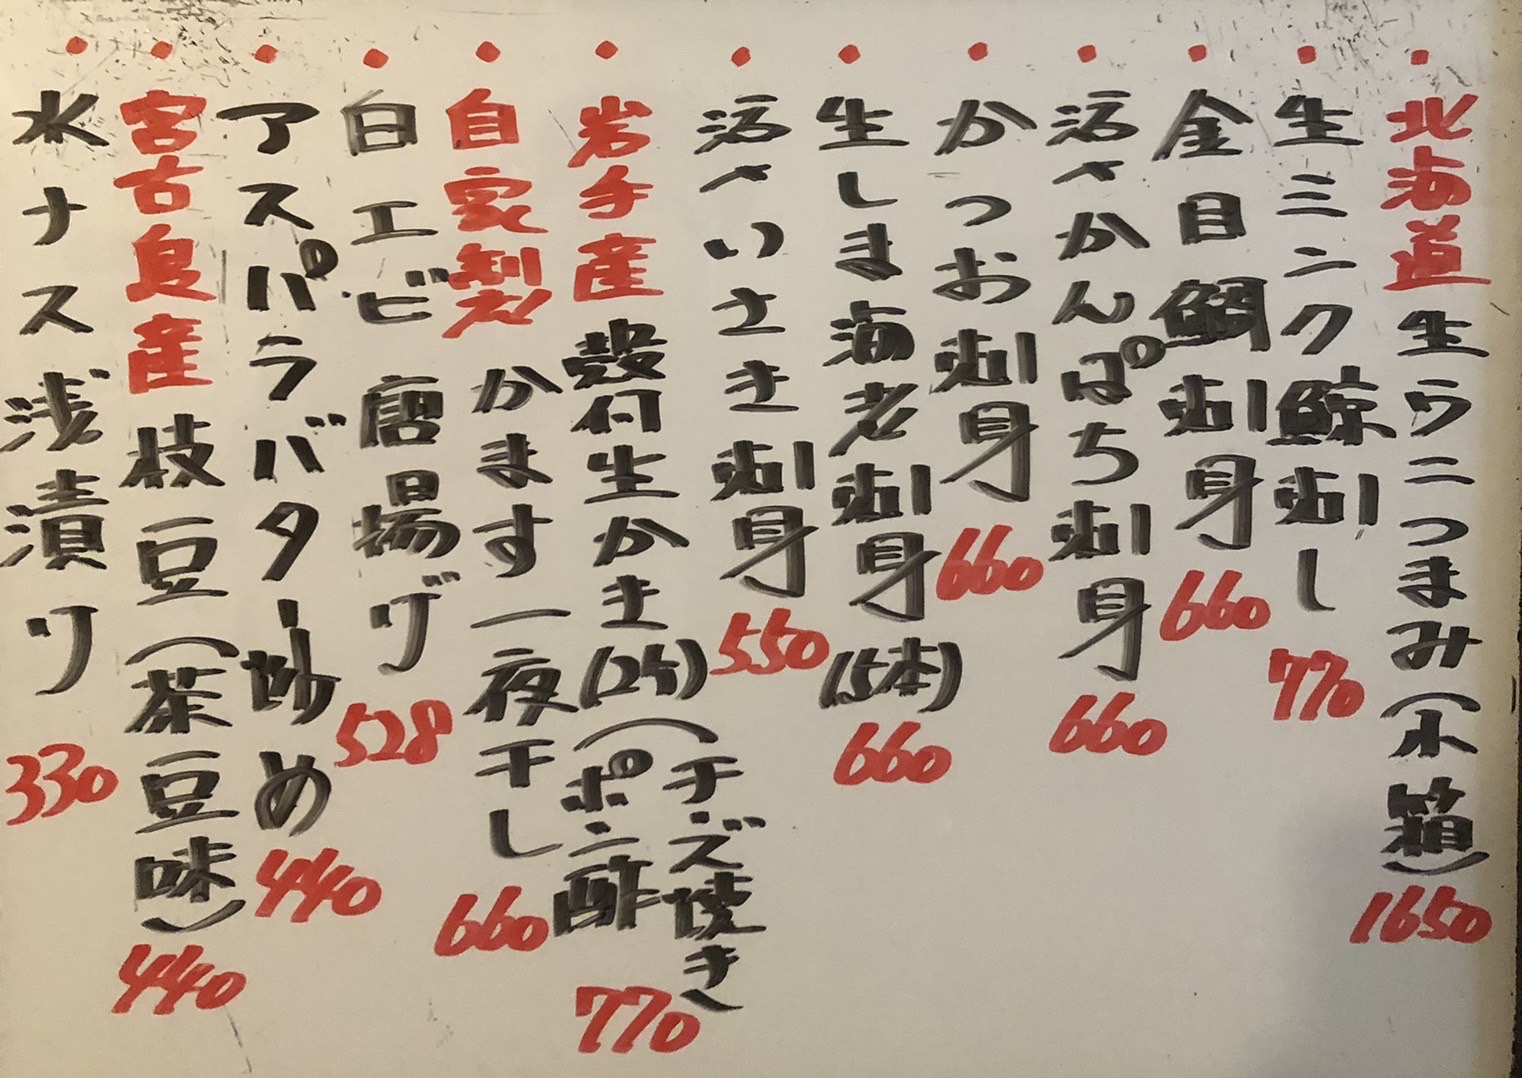 北海道生ウニつまみ(小箱)1650
生ミンク鯨刺し770
金目鯛刺身660
活〆かんぱち刺身660
かつお刺身660
生しま海老刺身(5本)660
活〆いさき刺身550
岩手産殻付生かき(2ケ)(チーズ焼き ポン酢)770
自家製かます一夜干し660
白エビ唐揚げ528
アスパラバター炒め440
宮古島産枝豆(茶豆味)440
水ナス浅漬り330